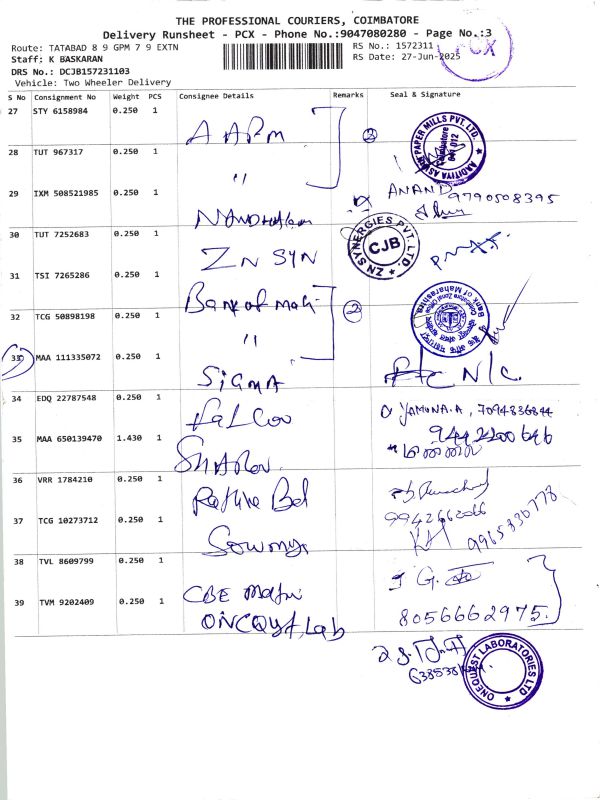 THE PROFESSIONAL COURIERS, COIMBATORE
Delivery Runsheet - PCX - Phone No.:9047080280 - Page No.:3
Route: TATABAD 8 9 GPM 7 9 EXTN
RS No.: 1572311
PCX
Staff; K BASKARAN
RS Date: 27-Jun-2025
DRS No.: DCJB157231103
Vehicle: Two Wheeler Delivery
S No Consignment No Weight PCS Consignee Details Remarks Seal & Signature
27 STY 6158984 0.250 1
AARM
2
AADITYA ASWIN PAPER MILLS PVT. LTD. Coimbatore 641 012
28 TUT 967317 0.250 1
"
29 IXM 508521985 0.250 1
ANAND
9790508395
30 TUT 7252683 0.250 1
ZN SYN
ZN SYNERGIES PVT. LTD. CJB
31 TSI 7265286 0.250 1
Bank of Mah
2
Bank of Maharashtra
Coimbatore Zonal Office
32 TCG 50898198 0.250 1
"
33 MAA 111335072 0.250 1
SIGMA
N/C.
34 EDQ 22787548 0.250 1
Falcon
YAMUNA.A, 7094836844
35 MAA 650139470 1.430 1
9442200646
SHARON
36 VRR 1784210 0.250 1
9942662066
37 TCG 10273712 0.250 1
Sowmya
9965330778
38 TVL 8609799 0.250 1
39 TVM 9202409 0.250 1
CBE
8056662975.
ONCQUST, Lab
ONEQUEST LABORATORIES LTD